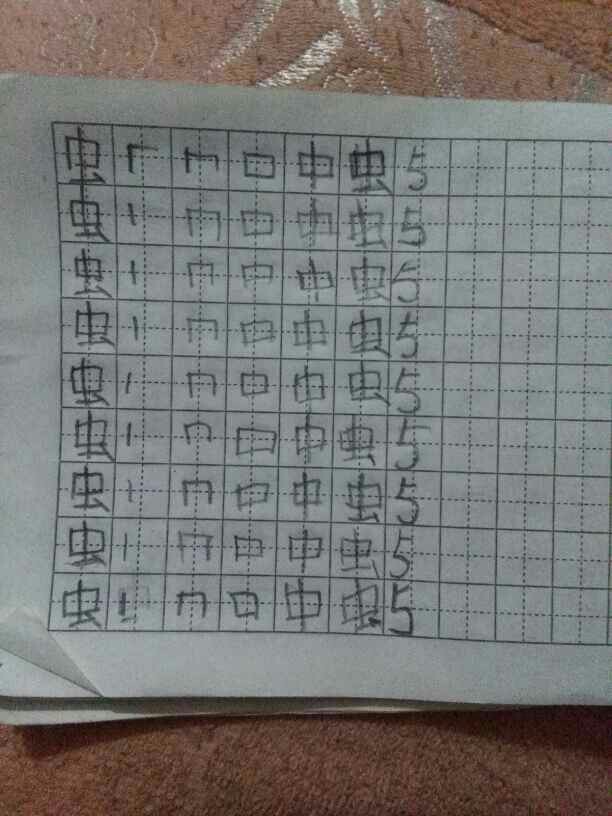 虫 冂 口 中 虫 5
虫 丨 冂 口 中 虫 5
虫 丨 冂 口 中 虫 5
虫 丨 冂 口 中 虫 5
虫 丨 冂 口 中 虫 5
虫 丨 冂 口 中 虫 5
虫 丨 冂 口 中 虫 5
虫 丨 冂 口 中 虫 5
虫 丨 冂 口 中 虫 5